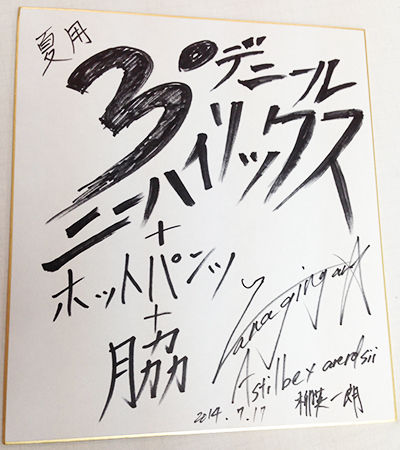 夏用
3°デニール
ニーハイソックス
+
ホットパンツ
+
脇
Astilbe x arendsii
2014.7.17